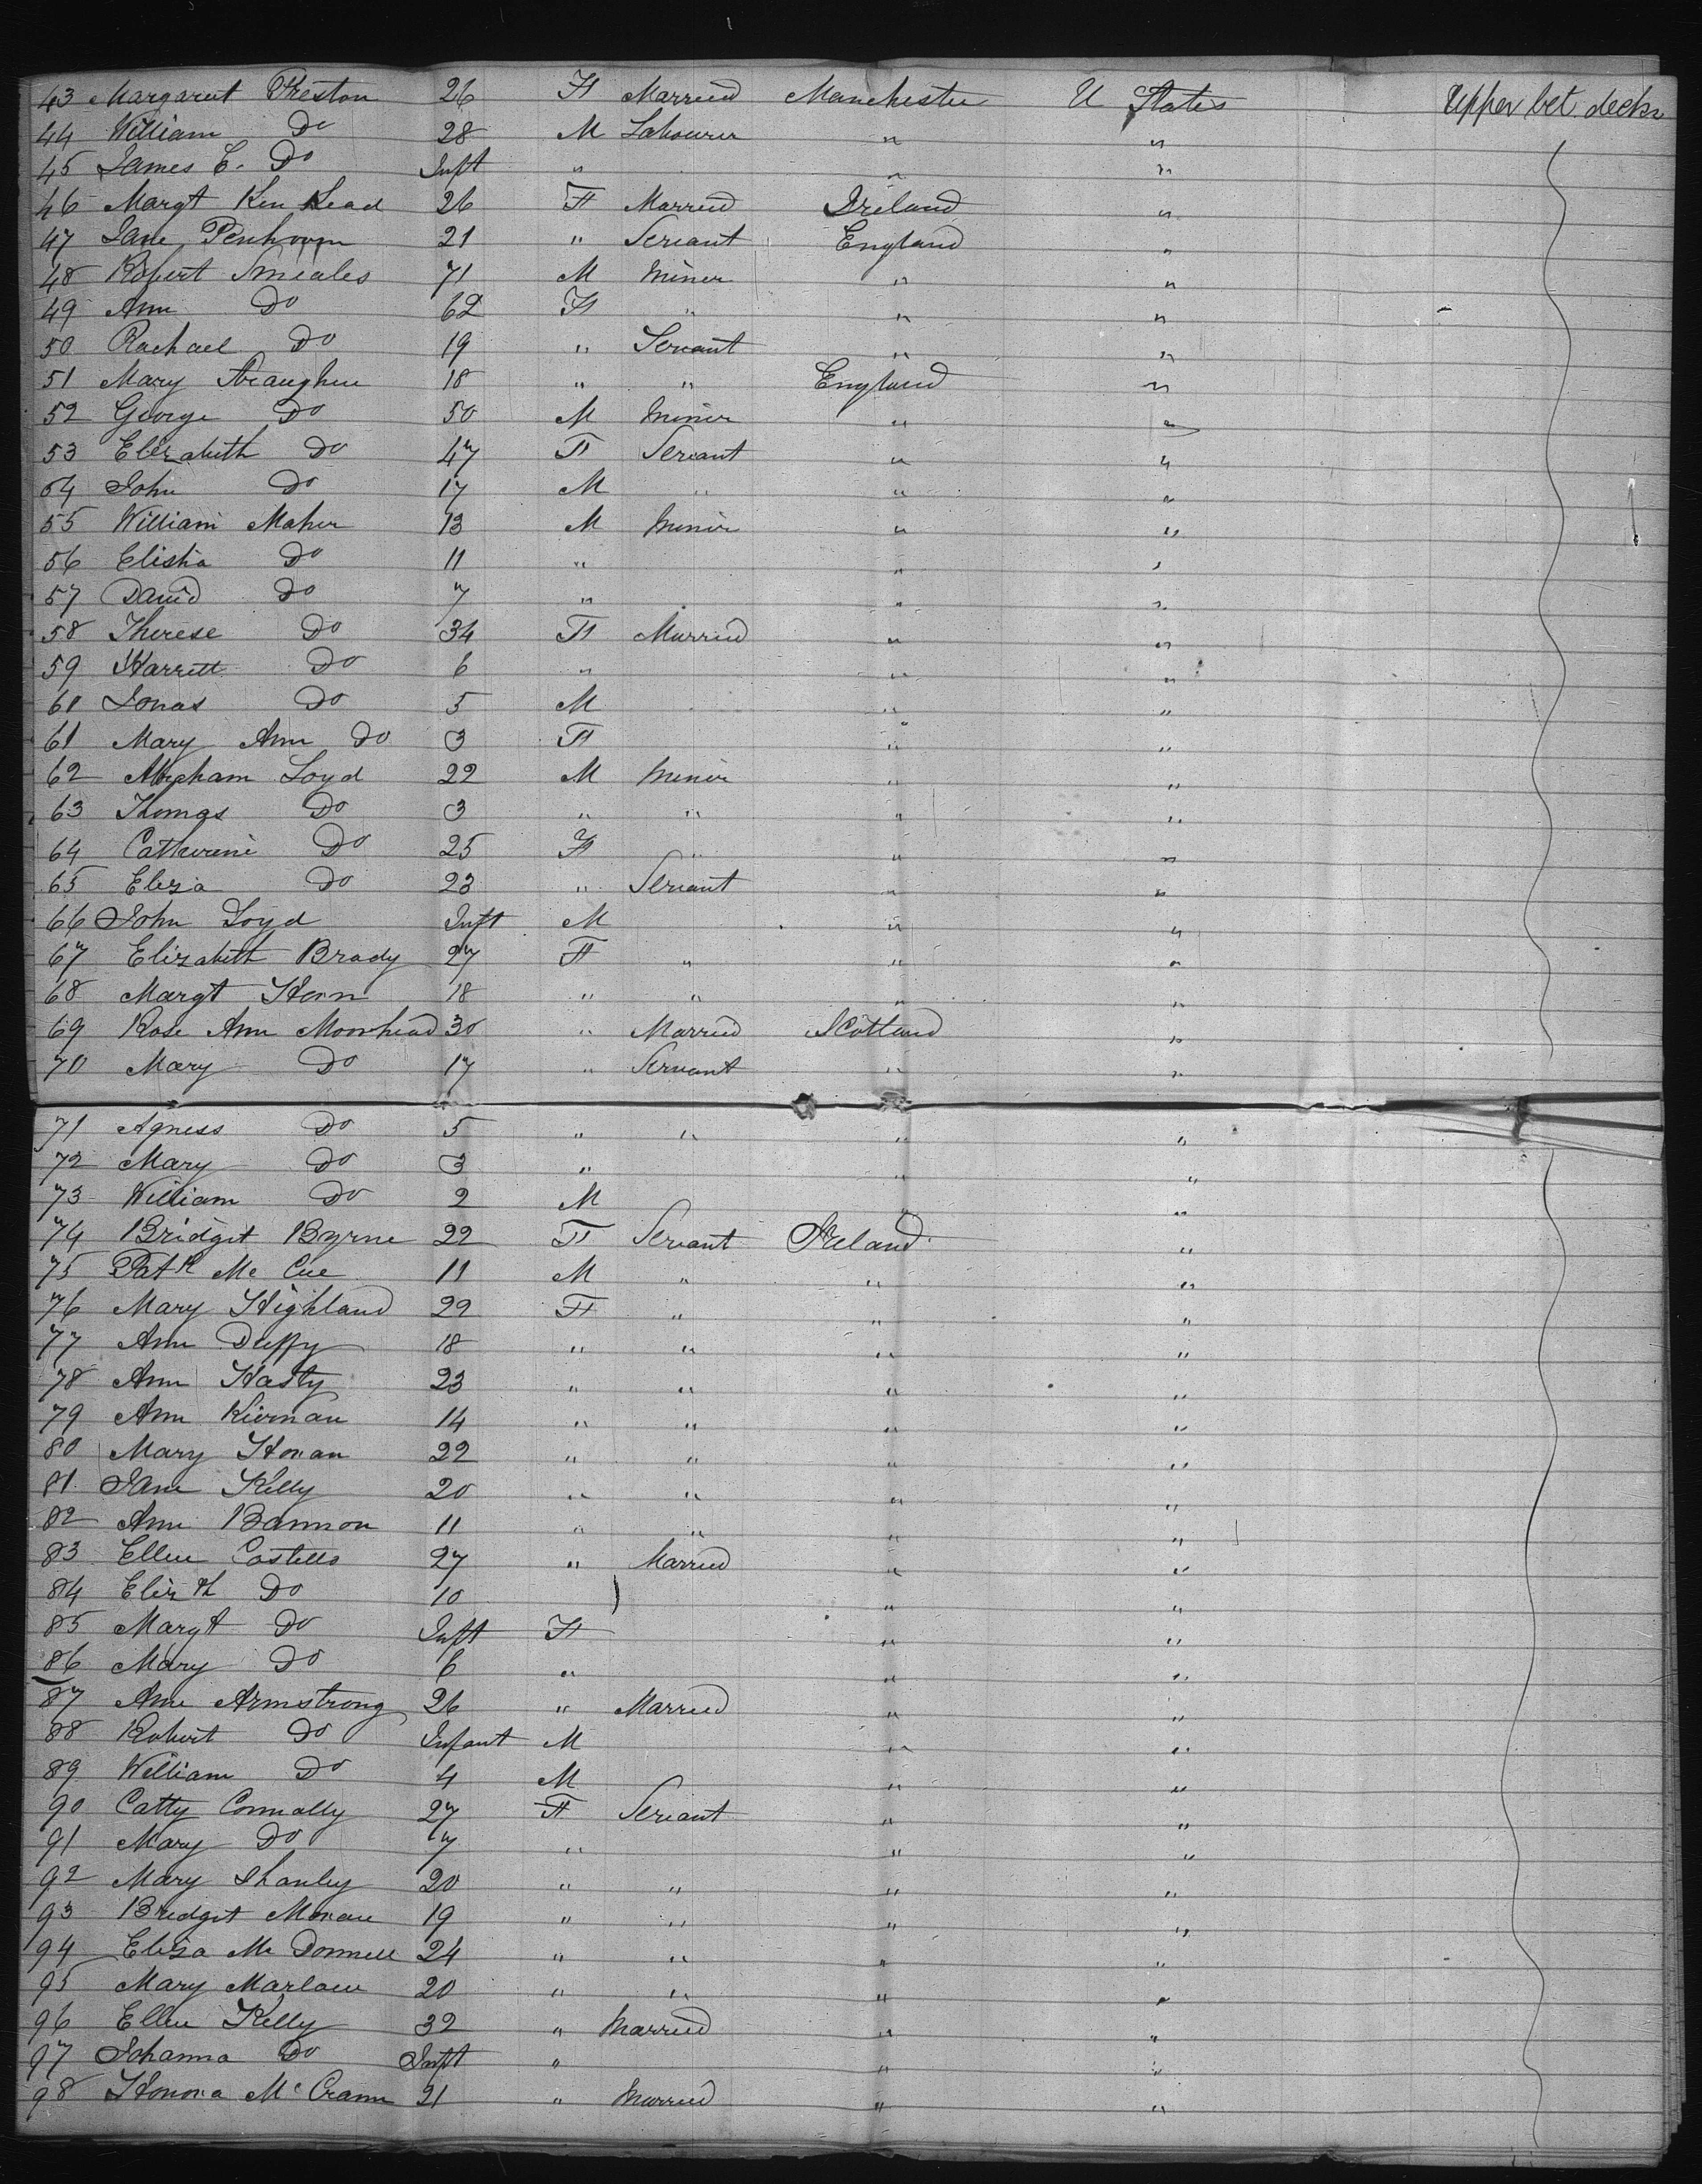 43 Margaret Preston 26 F Married Manchester U States Upper bet. decks
44 William Do 28 M Labourer " "
45 James E. Do Inft " " "
46 Margt Ken Kead 26 F Married Ireland "
47 Jane Penhoorn 21 " Servant England "
48 Robert Smeales 71 M Miner " "
49 Ann Do 62 F " " "
50 Rachael Do 19 " Servant " "
51 Mary 18 " " England "
52 George Do 50 M Miner " "
53 Elizabeth Do 47 F Servant " "
54 John Do 17 M " " "
55 William Maher 13 M Miner " "
56 Elisha Do 11 " " "
57 David Do 7 " " "
58 Therese Do 34 F Married " "
59 Harrett Do 6 " " "
60 Jonas Do 5 M " "
61 Mary Ann Do 3 F " "
62 Abraham Loyd 22 M Miner " "
63 Thomas Do 3 " " " "
64 Catherine Do 25 F " " "
65 Eliza Do 23 " Servant " "
66 John Loyd Inft M " "
67 Elizabeth Brady 27 F " " "
68 Margt Horn 18 " " " "
69 Rose Ann Moorhead 30 " Married Scotland "
70 Mary Do 17 " Servant " "
71 Agness Do 5 " " " "
72 Mary Do 3 " " "
73 William Do 2 M " "
74 Bridget Byrne 22 F Servant Ireland "
75 Patk Mc Cue 11 M " " "
76 Mary Highland 29 F " " "
77 Ann Duffy 18 " " " "
78 Ann Hasty 23 " " " "
79 Ann Kiernan 14 " " " "
80 Mary Honan 22 " " " "
81 Jane Kelly 20 " " " "
82 Ann Bannon 11 " " " "
83 Ellen Costello 27 " Married " "
84 Elizth Do 10 ) " "
85 Margt Do Inft F " "
86 Mary Do 6 " " "
87 Ann Armstrong 26 " Married " "
88 Robert Do Infant M " "
89 William Do 4 M " "
90 Catty Connolly 27 F Servant " "
91 Mary Do 7 " " "
92 Mary Shanley 20 " " " "
93 Bridget Moran 19 " " " "
94 Eliza Mc Donnell 24 " " " "
95 Mary Marlow 20 " " " "
96 Ellen Kelly 32 " Married " "
97 Johanna Do Inft " " "
98 Honora Mc Crann 21 " Married " "